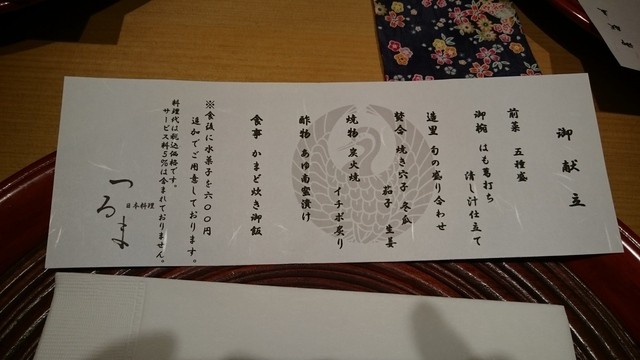 御献立
前菜 五種盛
御椀 はも葛打ち
清し汁仕立て
造里 旬の盛り合わせ
焚合 焼き穴子 冬瓜
茄子 生姜
焼物 炭火焼
イチボ炙り
酢物 あゆ南蛮漬け
食事 かまど炊き御飯
※食後に水菓子を六〇〇円
追加でご用意しております。
料理代は税込価格です。
サービス料5%は含まれておりません。
日本料理
つるま